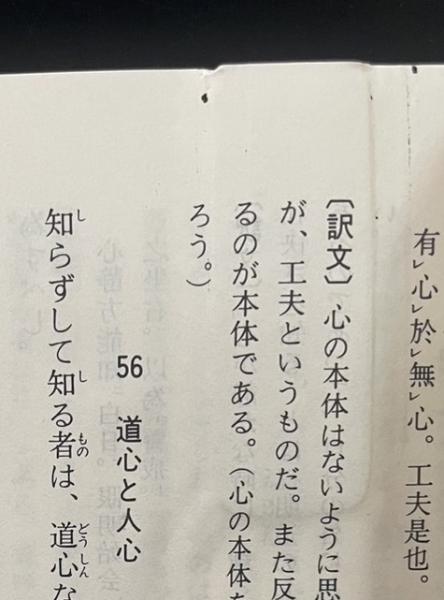 有㆑心㆓於㆒無㆑心。工夫是也。
〔訳文〕心の本体はないように思
が、工夫というものだ。また反
るのが本体である。（心の本体を
ろう。）
56 道心と人心
知らずして知る者は、道心な